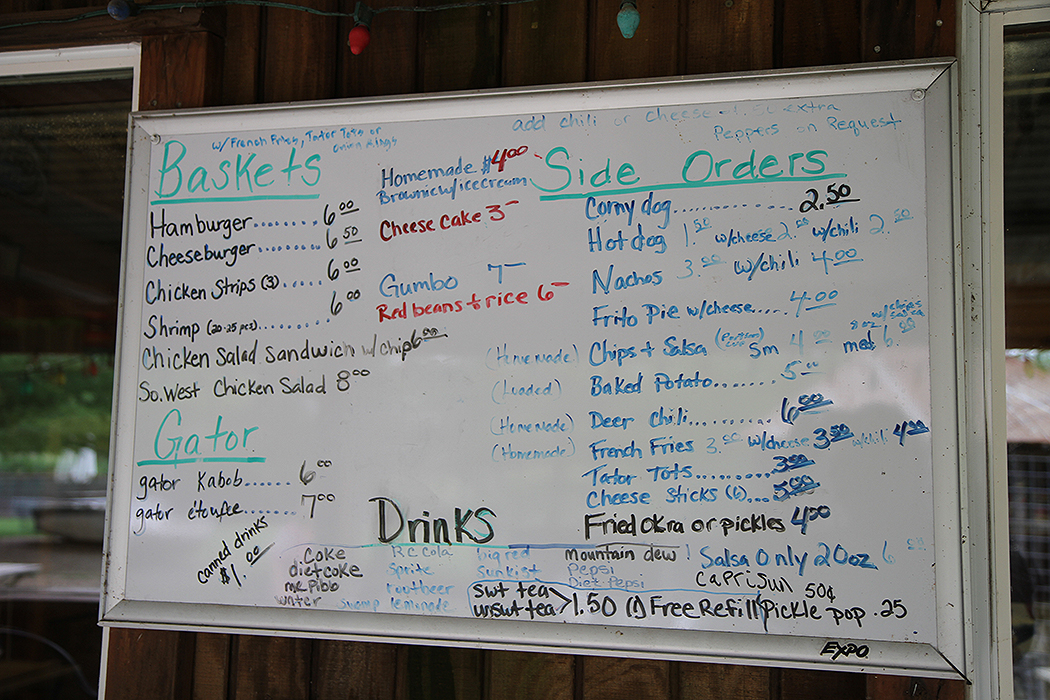 w/ French Fries, Tator Tots or
Onion Rings
Baskets
Hamburger........ 6.00
Cheeseburger........ 6.50
Chicken Strips (3)..... 6.00
Shrimp (20-25 pcs)........ 6.00
Chicken Salad Sandwich w/ chip 6.00
So. West Chicken Salad 8.00
Gator
gator Kabob...... 6.00
gator étoufee....... 7.00
Homemade $4.00
Brownie w/ icecream
Cheese Cake 3-
Gumbo 7-
Red beans + rice 6-
add chili or cheese extra
Peppers on Request
Side Orders
Corny dog.............. 2.50
Hot dog 1.50 w/cheese 2.00 w/chili 2.50
Nachos 3.00 w/chili 4.00
Frito Pie w/cheese..... 4.00
(Homemade) Chips + Salsa Sm 4.00 8oz med 6.00 w/ chips
(Loaded) Baked Potato....... 5.00
(Homemade) Deer Chili.......... 6.00
(Homemade) French Fries 3.00 w/cheese 3.50 w/chili 4.00
Tator Tots.......... 3.00
Cheese Sticks (6)... 5.00
Fried Okra or pickles 4.00
Salsa Only 20oz 6.00
Drinks
canned drinks
$1.00
Coke RC Cola big red Mountain dew
diet coke Sprite Sunkist Pepsi
mr Pibb rootbeer Diet Pepsi
water swamp lemonade
swt tea
unswt tea > 1.50 (1) Free Refill
Capri Sun 50¢
Pickle pop .25
EXPO